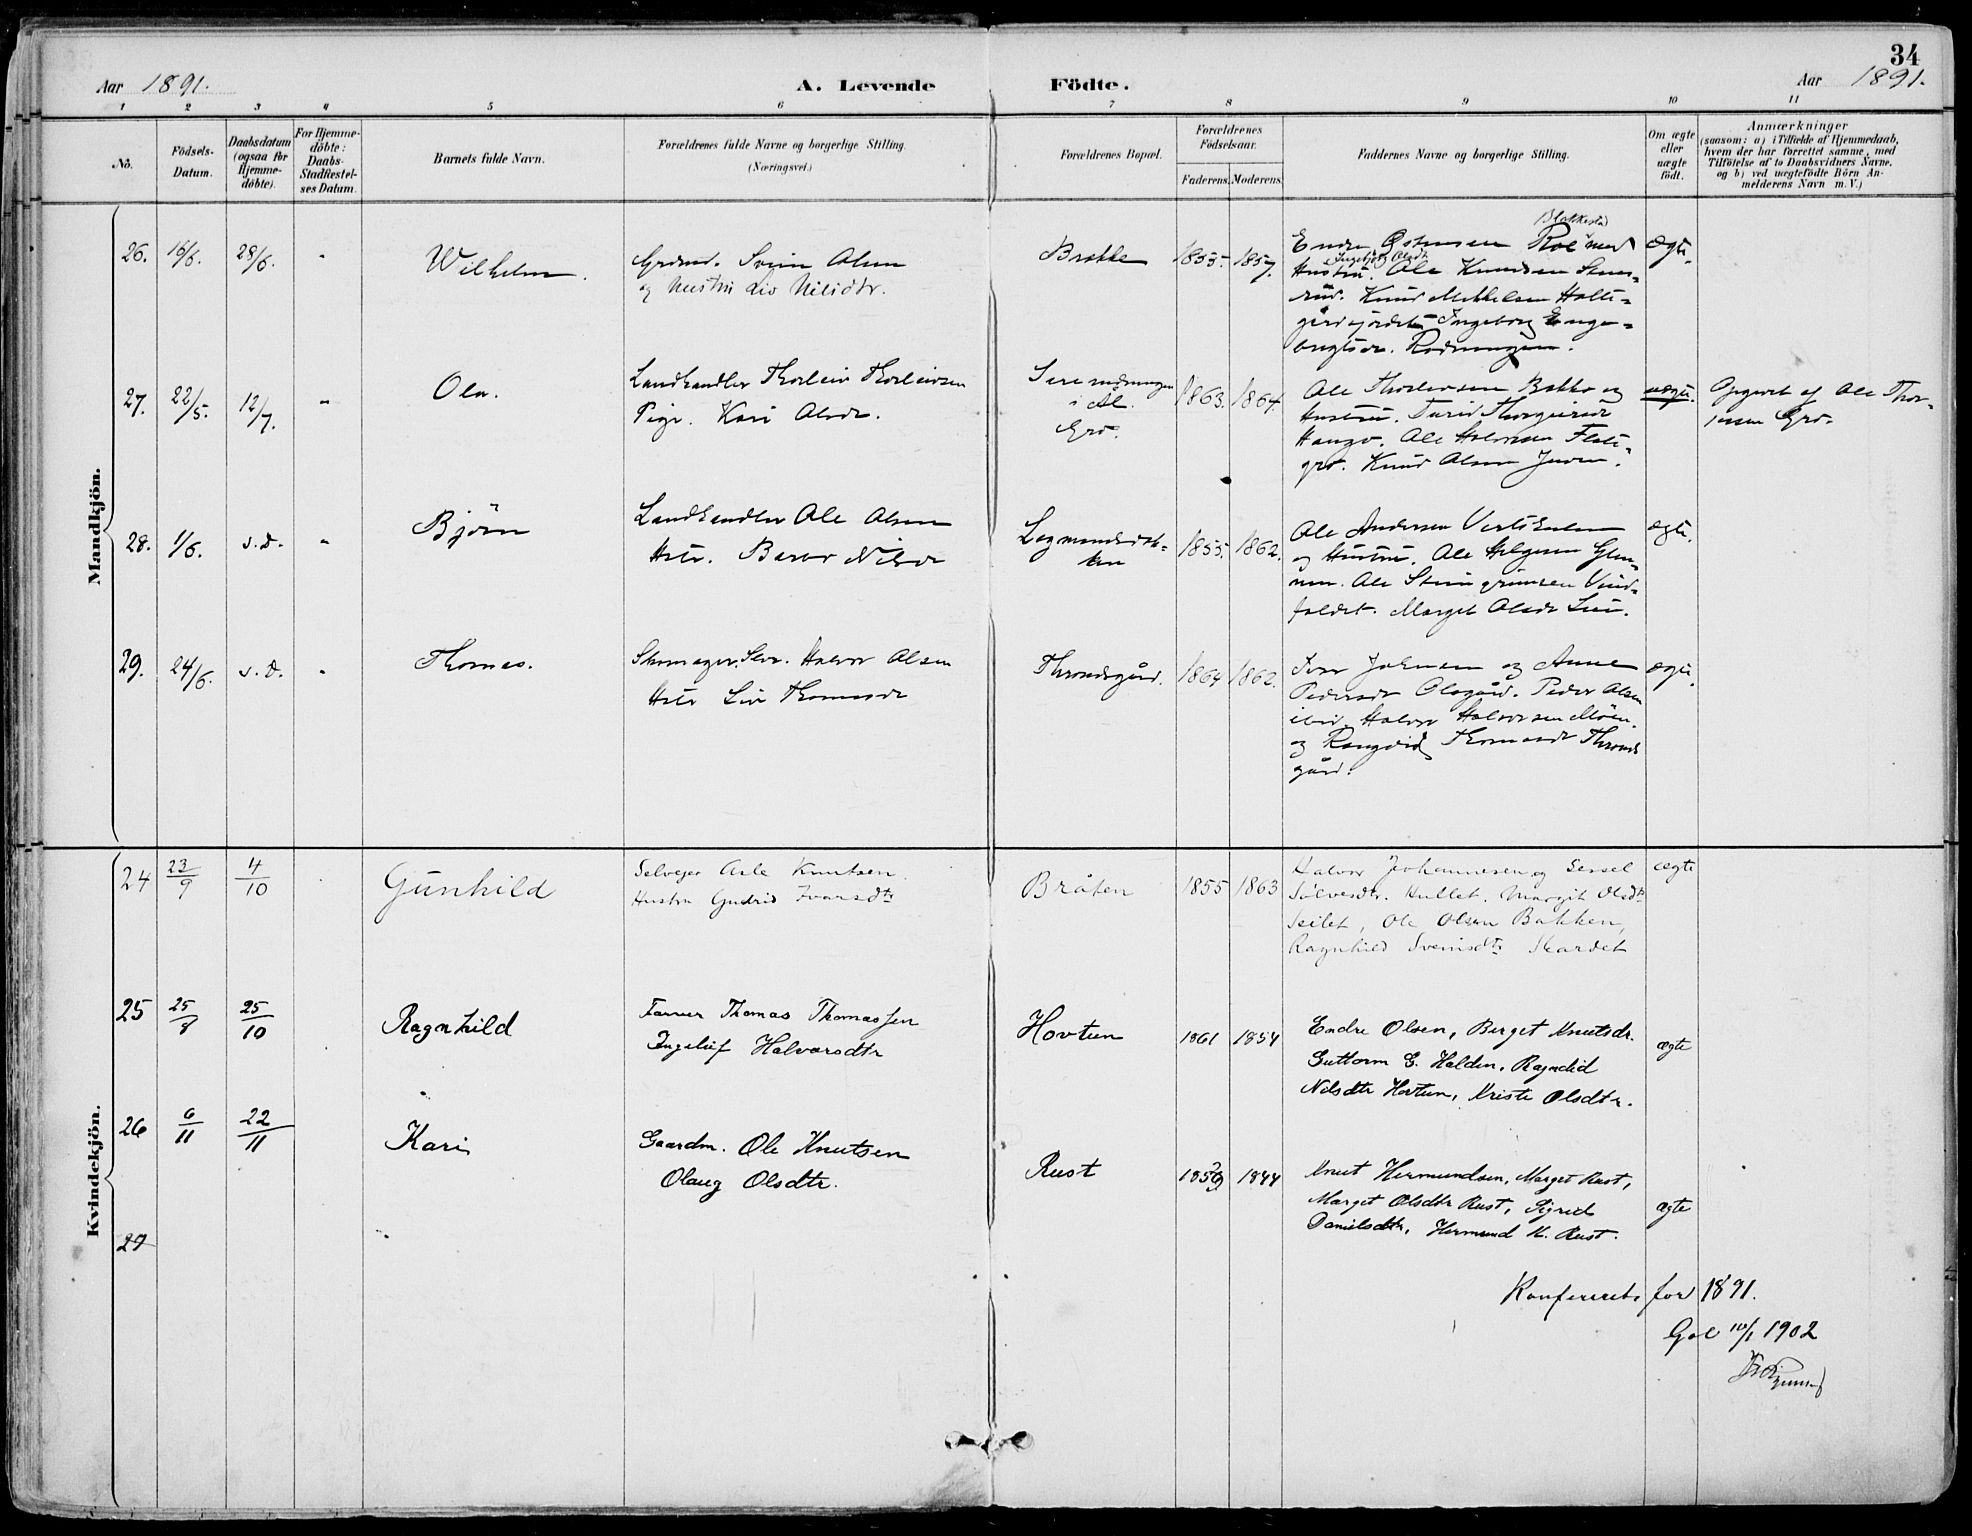 34
Aar 1891.
A. Levende Födte.
Aar 1891.
1 2 3 4 5 6 7 8 9 10 11
No.
Födsels-
Datum.
Daabsdatum
(ogsaa for
Hjemme-
döbte).
For Hjemme-
döbte:
Daabs-
Stadfæstel-
ses Datum.
Barnets fulde Navn.
Forældrenes fulde Navne og borgerlige Stilling.
(Næringsvei.)
Forældrenes Bopæl.
Forældrenes
Födselsaar.
Faderens. Moderens.
Faddernes Navne og borgerlige Stilling.
Om ægte
eller
uægte
født.
Anmærkninger
(saasom: a) i Tilfælde af Hjemmedaab,
hvem der har forrettet samme, med
Tilföielse af to Daabsvidners Navne,
og b) ved uægtefödte Börn An-
melderens Navn m. V.)
Mandkjön.
26. 16/6. 28/6. "
Wilhelm.
Grdmd. Svein Olsen
og Hustru Liv Nilsdtr.
Brakke
1855. 1857.
Blakkestad
Endre Ostensen Roe med
Ingebjørg Olsdt
Hustru. Ole Knudsen
rud. Knud Mikkelsen Holte-
gårdsjordet. Ingeborg Enge-
brigtsdr. Rodningen.
ægte.
27. 22/5. 12/7. "
Ola.
Landhandler Thorleiv Thorleivsen
Pige. Kari Olsdr.
i Al.
Gro.
1863. 1864.
Ole Thorleivsen Bakko og
Hustru. Turid Thorgeirsdr
Haugo. Ole Halvorsen Flate-
gro. Knud Olsen Juven.
uægte.
Opgivet af Ole Thor-
sen Gro.
28. 1/6. s.D. "
Björn
Landhandler Ole Olsen
Hstr. Barbr Nilsdr
1855. 1862.
Ole Andersen
og Hustru. Ole Helgesen Glen-
nen. Ole Steingrimsen Vind-
foldet. Marget Olsdr
ægte.
29. 24/6. s.D. "
Thomas.
Skomager, Selv. Halvor Olsen
Hstr Liv Thomasdr
Throndsgård.
1864 1862.
Iver Johnsen og Anne
Pedersdr Olsgård. Peder Olsen
ibid. Halvor Halvorsen Møen.
og Rangdid Thomasdr Thronds
gård.
ægte.
Kvindekjön.
24 23/9 4/10
Gunhild
Selveier Asle Knutsen.
Hustru Gudrid Ivarsdtr
Bråten
1855 1863
Halvor Johannesen og Sessel
Sølvesdtr. Hullet. Margit Olsdtr
Seilet, Ole Olsen Bakken,
Ragnhild Sveinsdtr Skardet
ægte
25 25/8 25/10
Ragnhild
Farver Thomas Thomassen
Ingelief Halvorsdtr
Hovtun
1861 1854
Endre Olsen, Berget Knutsdr.
Guttorm G. Halden. Ragndid
Nilsdtr Hovtun, Kristi Olsdtr.
ægte
26 6/11 22/11
Kari
Gaardm. Ole Knutsen
Olaug Olsdtr.
Rust
1859 1844
Knut Hermundsen, Marget Rust,
Marget Olsdtr Rust, Sigrid
Danielsdtr, Hermund K. Rust.
ægte
27
Konfereret for 1891.
Gol 10/1 1902